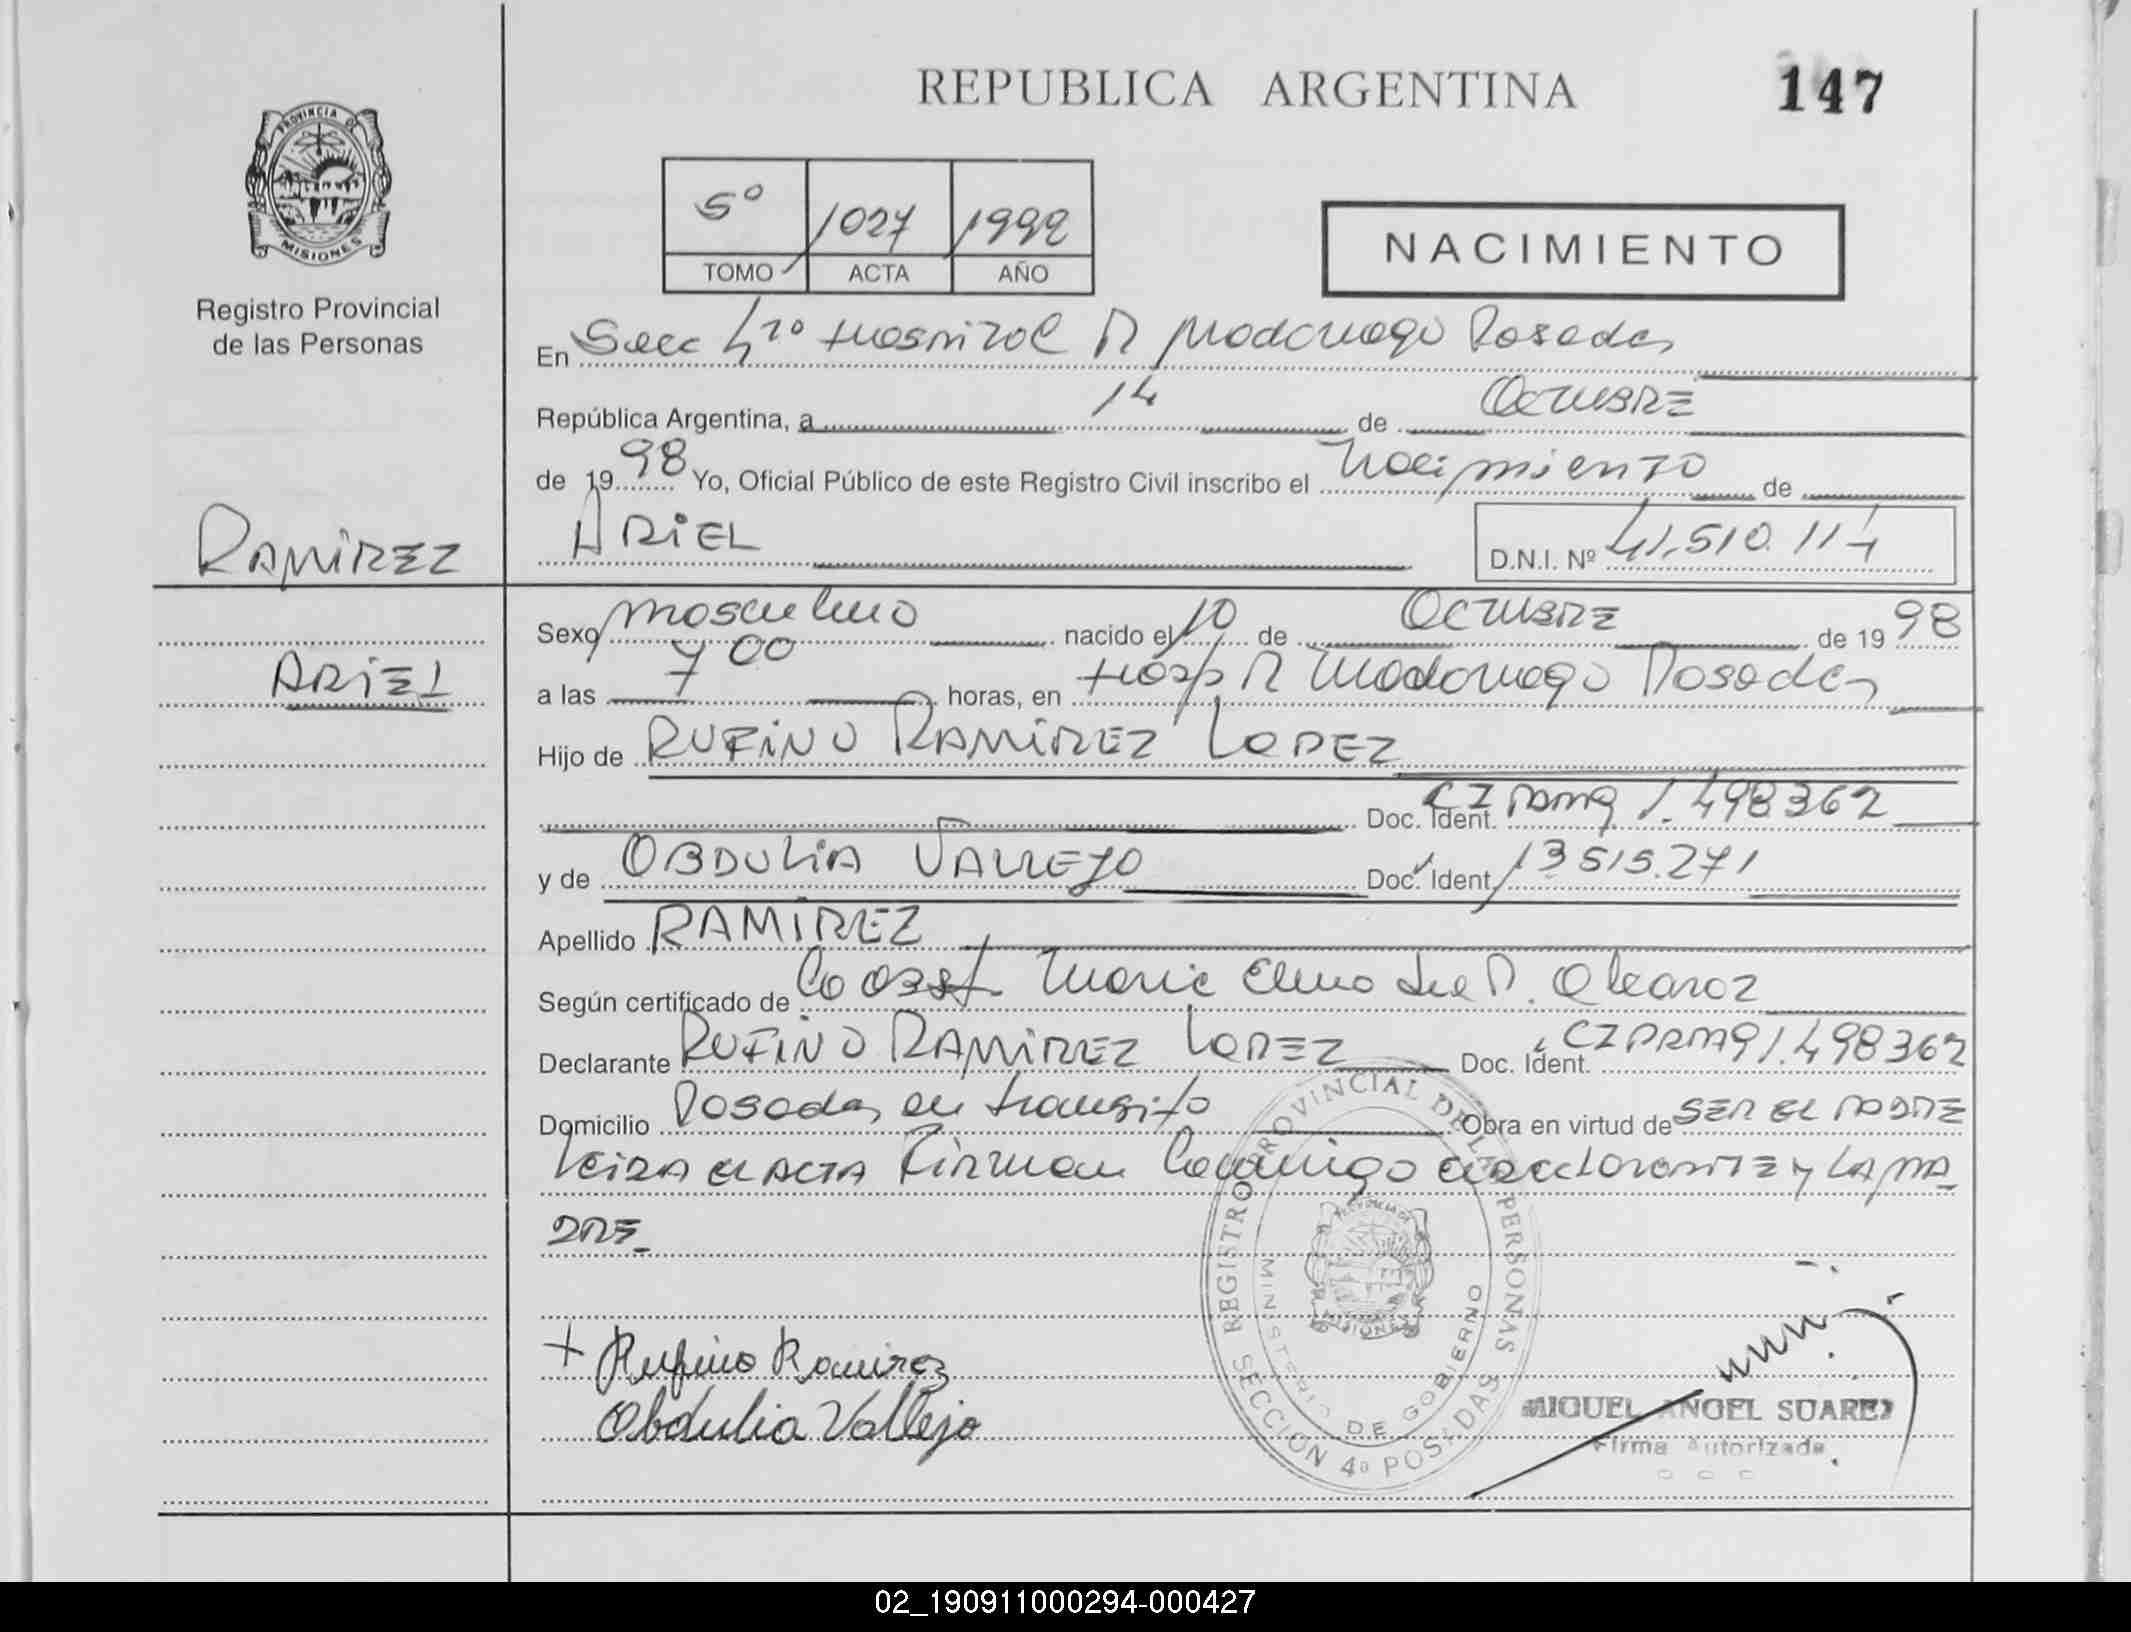 REPUBLICA ARGENTINA
147
PROVINCIA DE
MISIONES
Registro Provincial
de las Personas
5º 1027 1998
TOMO ACTA AÑO
NACIMIENTO
En Secc 4ta Hospital R Madariaga Posadas
República Argentina, a 14 de OCTUBRE
de 1998 Yo, Oficial Público de este Registro Civil inscribo el Nacimiento de
RAMIREZ
ARIEL
D.N.I. Nº 41.510.114
Sexo masculino nacido el 10 de OCTUBRE de 1998
ARIEL
a las 7 00 horas, en Hosp R Madariaga Posadas
Hijo de RUFINO RAMIREZ LOPEZ
Doc. Ident. CI 1.498362
y de OBDULIA VALLEJO Doc. Ident. 13515.271
Apellido RAMIREZ
Según certificado de la Obst. Maria Elena de Alcaraz
Declarante RUFINO RAMIREZ LOPEZ Doc. Ident. CI 1.498362
Domicilio Posadas en transito Obra en virtud de SER EL PADRE
LEIDA EL ACTA Firman Conmigo el declarante y LA MA
DRE
+ Rufino Ramirez
Obdulia Vallejo
REGISTRO PROVINCIAL DE LAS PERSONAS
MINISTERIO DE GOBIERNO
SECCION 4ª POSADAS
PROVINCIA DE
MISIONES
MIGUEL ANGEL SUAREZ
Firma Autorizada
02_190911000294-000427